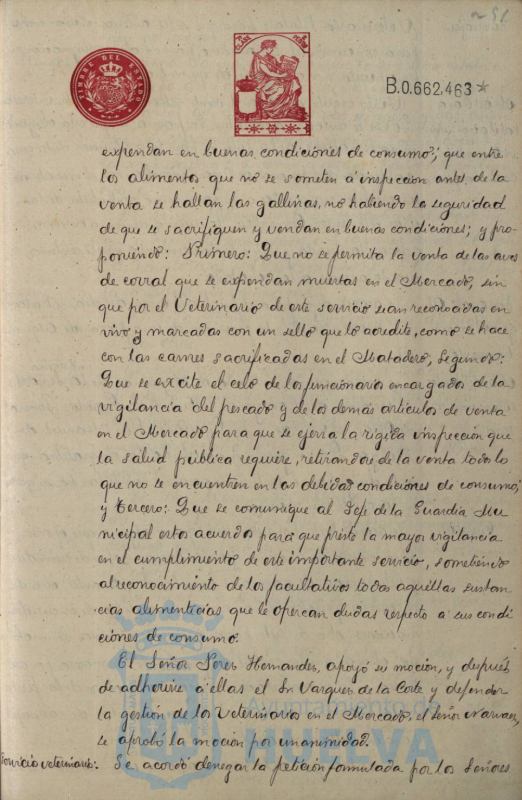 251
TIMBRE DEL ESTADO
B.0.662.463*
expendan en buenas condiciones de consumo; que entre
los alimentos que no se someten á inspeccion antes de la
venta se hallan las gallinas, no habiendo la seguridad
de que se sacrifiquen y vendan en buenas condiciones; y pro-
poniendo: Primero: Que no se permita la venta de las aves
de corral que se expendan muertas en el Mercado, sin
que por el Veterinario de este servicio sean reconocidas en
vivo y marcadas con un sello que lo acredite, como se hace
con las carnes sacrificadas en el Matadero, Segundo:
Que se excite el celo de los funcionarios encargados de la
vigilancia del pescado y de los demás artículos de venta
en el Mercado para que se ejerza la rígida inspección que
la salud pública requiere, retirandose de la venta todo lo
que no se encuentren en las debidas condiciones de consumo;
y tercero: Que se comunique al Jefe de la Guardia Mu-
nicipal estos acuerdos para que preste la mayor vigilancia
en el cumplimiento de este importante servicio, sometiendo
al reconocimiento de los facultativos todas aquellas sustan-
cias alimenticias que le ofrezcan dudas respecto a sus condi
ciones de consumo.
El Señor Perez Hernandez, apoyó su moción, y después
de adherirse a ellas el Sr. Vazquez de la Corte y defender
la gestión de los Veterinarios en el Mercado, el señor Narvaez,
se aprobó la moción por unanimidad.
Servicio veterinario: Se acordó denegar la petición formulada por los Señores
Ayuntamiento de
HUELVA